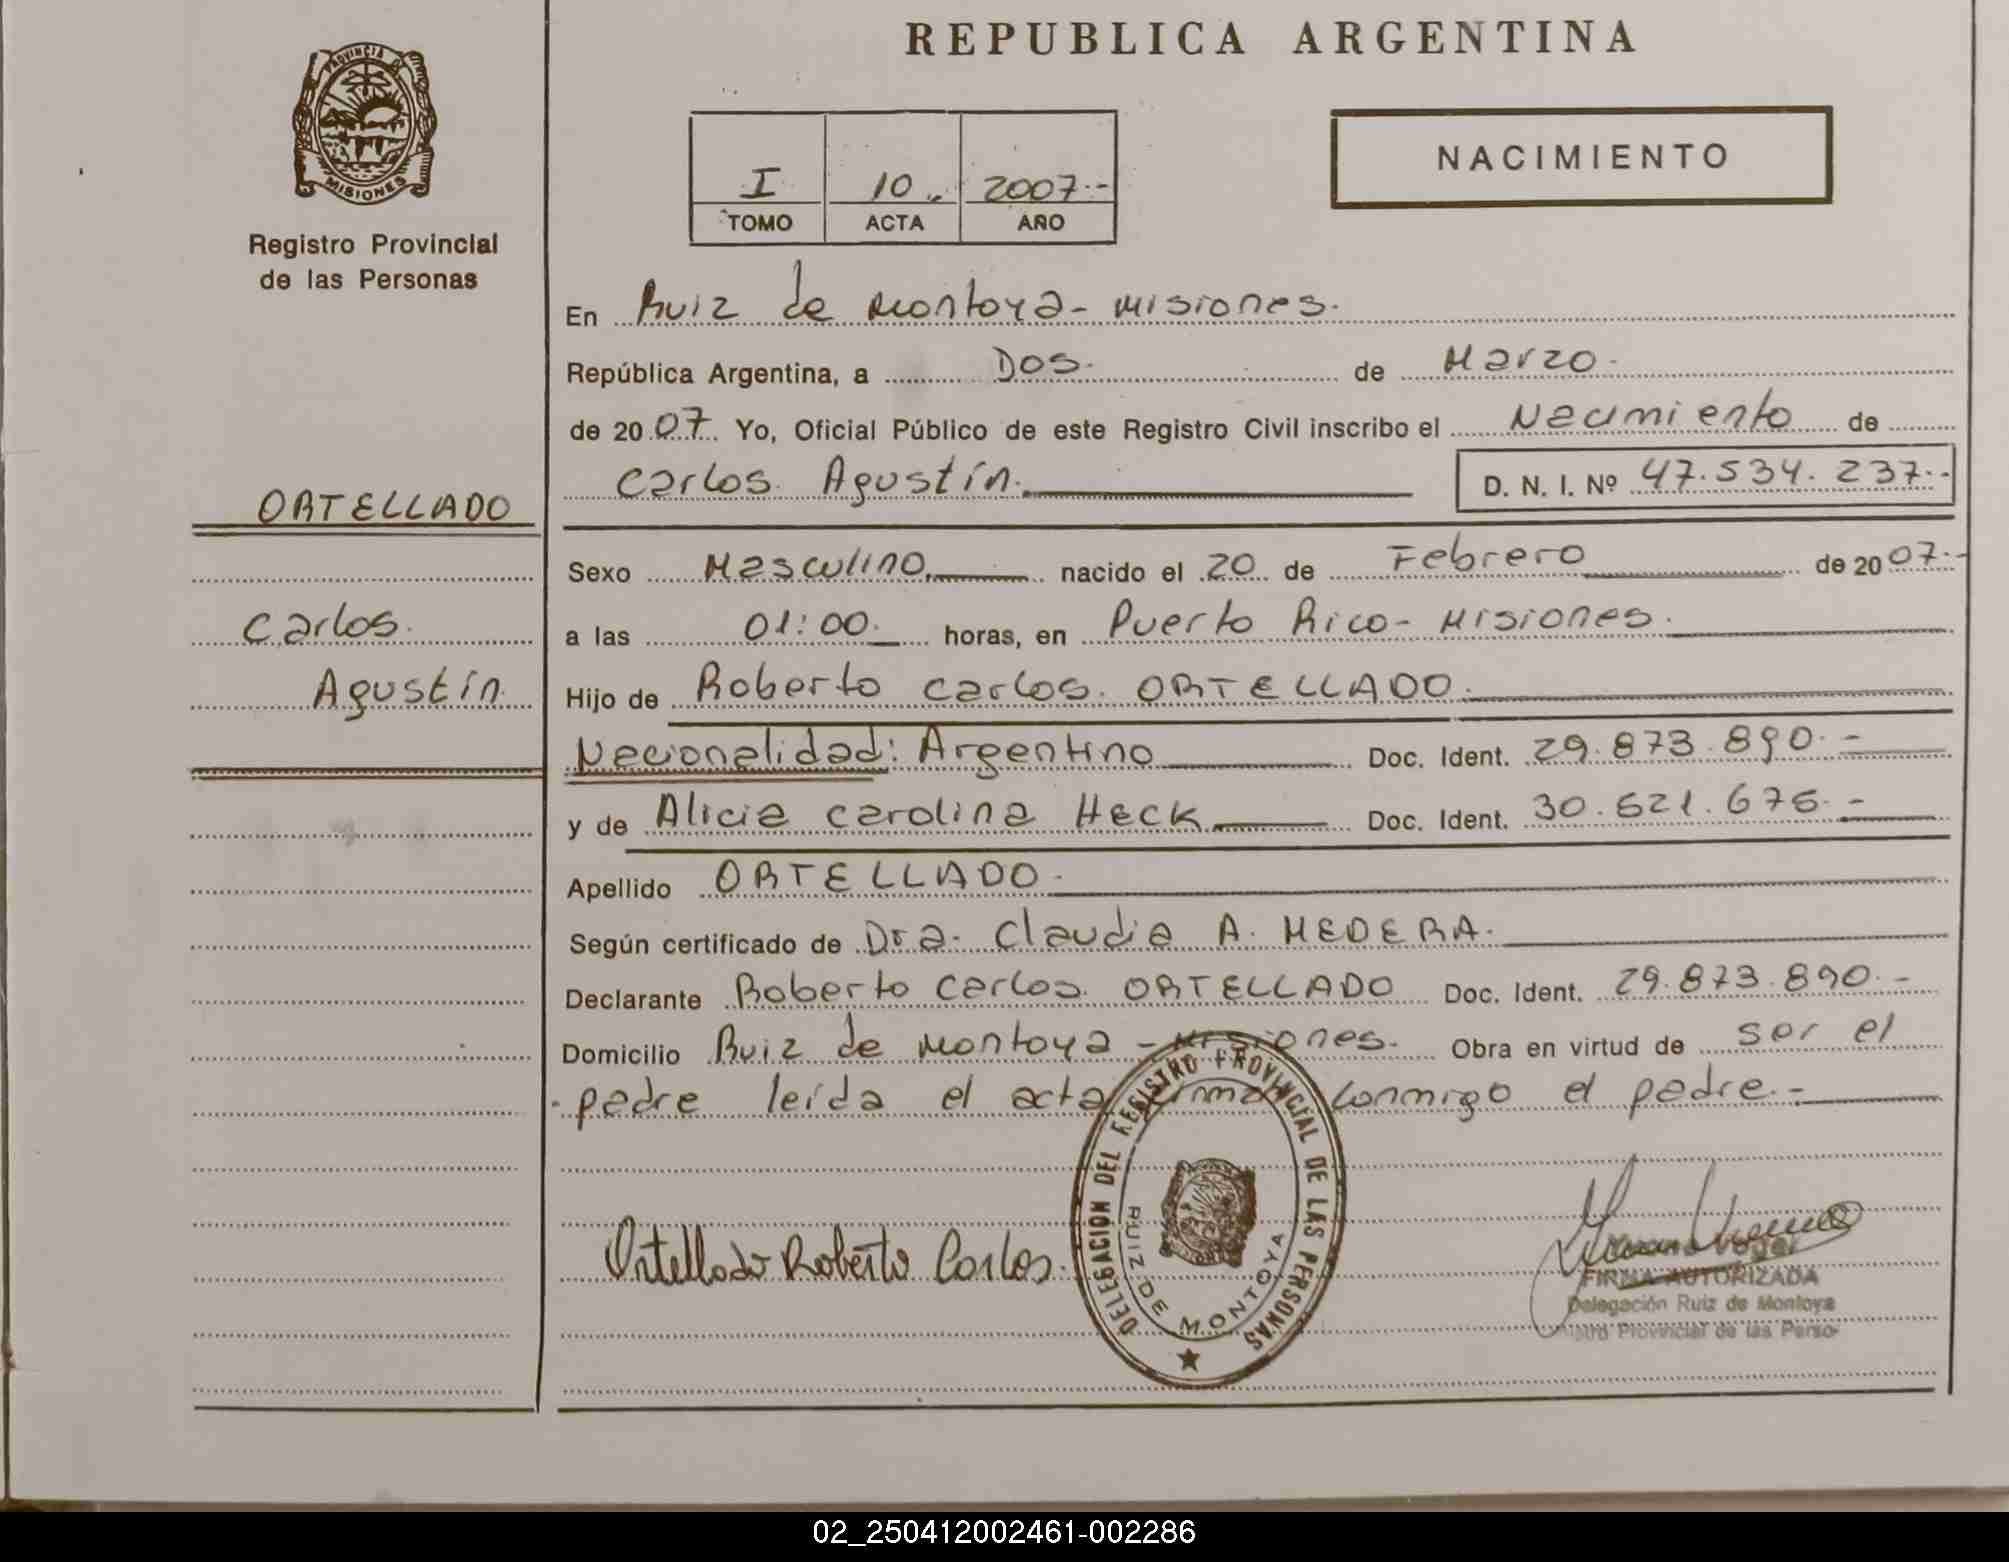 REPUBLICA ARGENTINA
PROVINCIA DE
MISIONES
Registro Provincial
de las Personas
I 10 2007.-
TOMO ACTA AÑO
NACIMIENTO
En Ruiz de Montoya - Misiones.
República Argentina, a Dos. de Marzo.
de 2007. Yo, Oficial Público de este Registro Civil inscribo el Nacimiento de
Carlos Agustín. D. N. I. Nº 47.534.237.-
ORTELLADO
Carlos
Agustín
Sexo Masculino. nacido el 20 de Febrero de 2007.-
a las 01:00. horas, en Puerto Rico - Misiones.
Hijo de Roberto Carlos ORTELLADO.
Nacionalidad: Argentino Doc. Ident. 29.873.890.-
y de Alicia Carolina Heck Doc. Ident. 30.621.676.-
Apellido ORTELLADO.
Según certificado de Dra. Claudia A. MEDERA.
Declarante Roberto Carlos ORTELLADO Doc. Ident. 29.873.890.-
Domicilio Ruiz de Montoya - Misiones. Obra en virtud de ser el
padre leída el acta firma conmigo el padre.-
Ortellado Roberto Carlos.
DELEGACION DEL REGISTRO PROVINCIAL DE LAS PERSONAS
RUIZ DE MONTOYA
FIRMA AUTORIZADA
Delegación Ruiz de Montoya
Provincial de las Perso
02_250412002461-002286